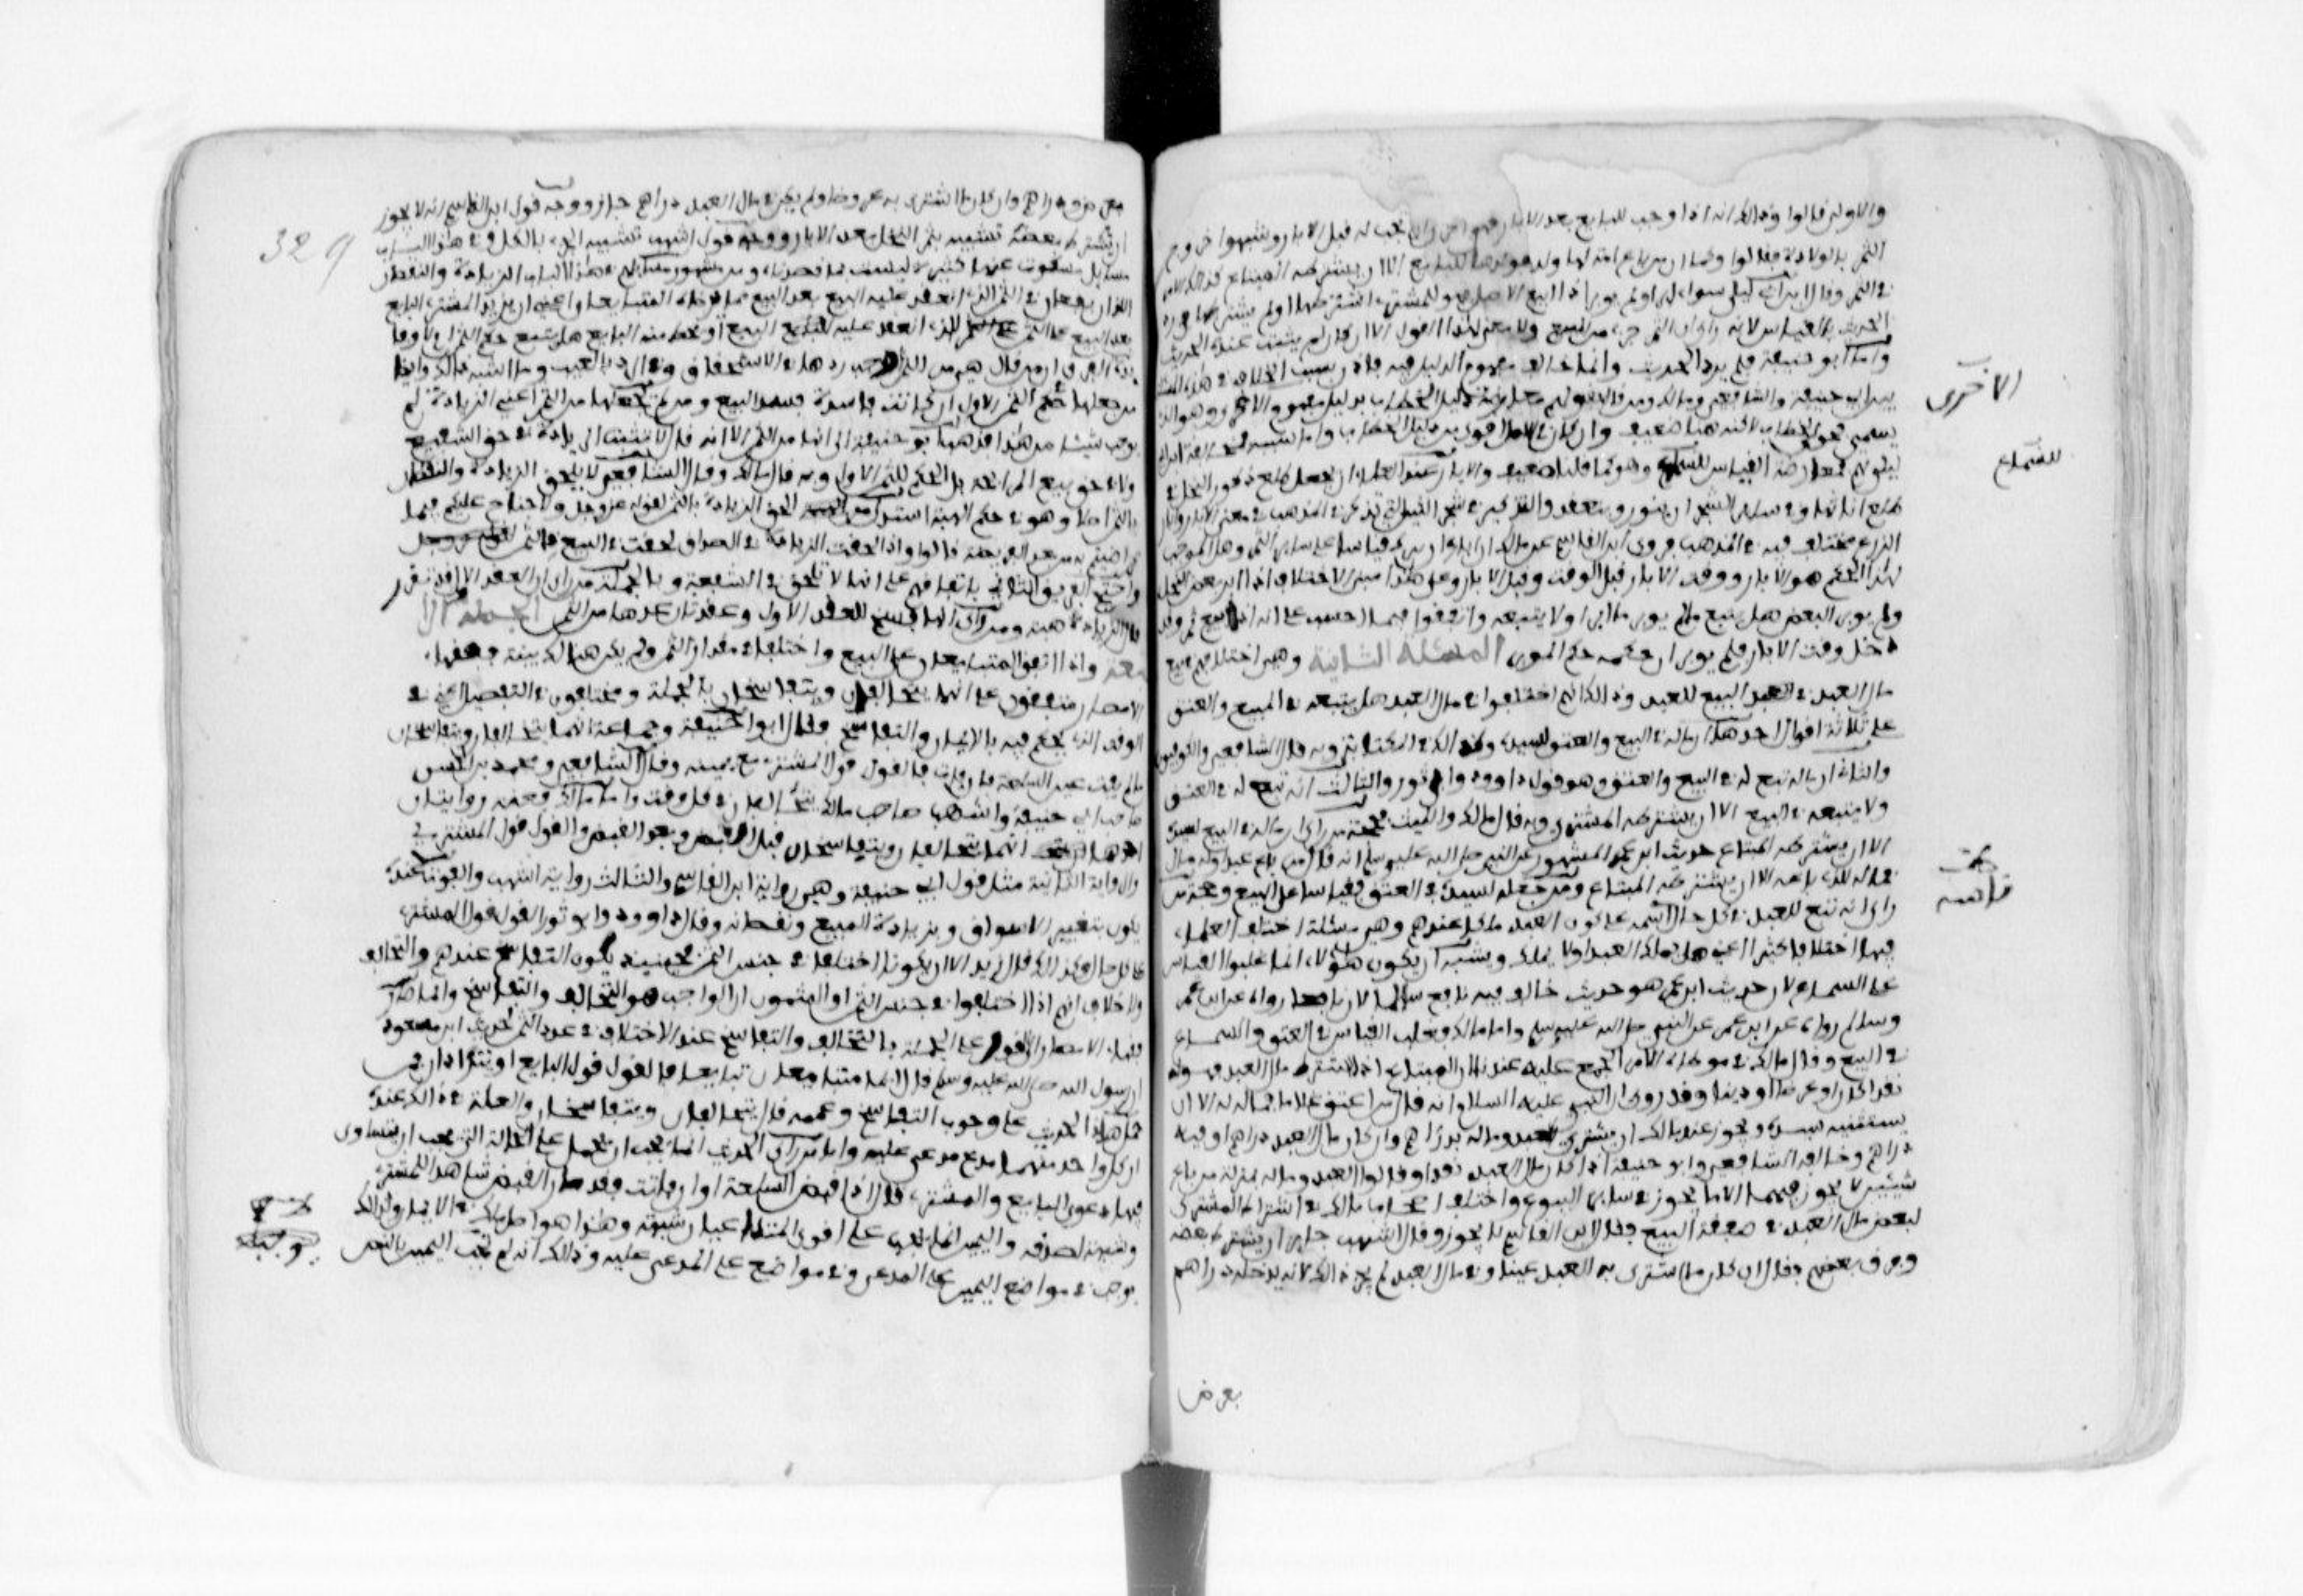 والاولى قالوا وذلك انه اذا وجب للبايع بعد الابار فهو احرى ان يجب له قبل الابار وشبهوا خروج
الثمر بالولادة فقالوا وكما ان من باع امة لها ولد فولدها للبايع الا ان يشترطه المبتاع كذلك الامر
في الثمر وقال ابن ابي ليلى سواء ابر او لم يوبر اذا بيع الاصل فهو للمشتري اشترطها او لم يشترطها فرد
الحديث بالقياس لانه راى ان الثمر جزء من المبيع ولا معنى لهذا القول الا ان كان لم يثبت عنده الحديث
واما ابو حنيفة فلم يرد الحديث وانما خالف مفهوم الدليل فيه فاذن سبب الخلاف في هذه المسئلة
بين ابي حنيفة والشافعي ومالك ومن قال بقولهم معارضة دليل الخطاب بدليل مفهوم الاحرى وهو الذي
يسمى فحوى الخطاب لاكنه هنا ضعيف وان كان في الاصل اقوى من دليل الخطاب واما سبب مخالفة ابن ابي
ليلى لهم فمعارضة القياس للسماع وهو كما قلنا ضعيف والابار عند العلماء ان يجعل طلع ذكور النخل في
طلع اناثها وفي ساير الشجر ان تنور وتعقد والتذكير في شجر التين التي تذكر في المذهب في معنى الابار وابار
الزرع مختلف فيه في المذهب فروى ابن القاسم عن مالك ان ابار الزرع ان يفرك قياسا على ساير الثمر وهل الموجب
لهذا الحكم هو الابار او وقت الابار قيل الوقت وقيل الابار وعلى هذا ينبني الاختلاف اذا ابر بعض النخل
ولم يوبر البعض هل يتبع ما لم يوبر ما ابر او لا يتبعه واتفقوا فيما احسب على انه اذا بيع ثمر وقد
دخل وقت الابار فلم يوبر ان حكمه حكم الموبر المسئلة الثانية وهي اختلافهم في بيع
مال العبد في العبد المبيع للعبد وذلك انهم اختلفوا في مال العبد هل يتبعه في البيع والعتق
على ثلاثة اقوال احدها ان ماله في البيع والعتق لسيده وكذلك في المكاتب وبه قال الشافعي والكوفيون
والثاني ان ماله تبع له في البيع والعتق وهو قول داوود وابي ثور والثالث انه تبع له في العتق
ولا يتبعه في البيع الا ان يشترطه المشتري وبه قال مالك والليث فحجة من راى ان ماله في البيع لسيده
الا ان يشترطه المبتاع حديث ابن عمر المشهور عن النبي صلى الله عليه وسلم انه قال من باع عبدا وله مال
فماله للذي باعه الا ان يشترطه المبتاع ومن جعله لسيده في العتق فقياسا على البيع وحجة من
راى انه تبع للعبد في كل حال انبنت على كون العبد مالكا عندهم وهي مسئلة اختلف العلماء
فيها اختلافا كثيرا اعني هل يملك العبد او لا يملك ويشبه ان يكون هؤلاء انما غلبوا القياس
على السماع لان حديث ابن عمر هو حديث خالف فيه نافع سالما لان نافعا رواه عن ابن عمر
وسالم رواه عن ابن عمر عن النبي صلى الله عليه وسلم واما مالك فغلب القياس في العتق والسماع
في البيع وقال مالك في موطاه الامر المجمع عليه عندنا ان المبتاع اذا اشترط مال العبد فهو له
نقدا كان او عرضا او دينا وقد روي ان النبي عليه السلام انه قال من اعتق غلاما فماله له الا ان
يستثنيه سيده ويجوز عند مالك ان يشتري العبد وماله بدراهم وان كان مال العبد دراهم او فيه
دراهم وخالفه الشافعي وابو حنيفة اذا كان مال العبد نقدا وقالوا العبد وماله بمنزلة من باع
شيئين لا يجوز فيهما الا ما يجوز في ساير البيوع واختلف اصحاب مالك في اشتراط المشتري
لبعض مال العبد في صفقة البيع فقال ابن القاسم لا يجوز وقال اشهب جايز ان يشترط بعضه
وفرق بعضهم فقال ان كان ما اشترى به العبد عينا وفي مال العبد لم يجز ذلك لانه يدخله دراهم
الاخرى
للسماع
بعرض
329
بعرض ودراهم وان كان ما اشترى به عروضا ولم يكن في مال العبد دراهم جاز ووجه قول ابن القاسم انه لا يجوز
ان يشترط بعضه تشبيهه بثمر النخل بعد الابار ووجه قول اشهب تشبيه الجزء بالكل وفي هذا الباب
مسايل مسكوت عنها كثيرة ليست مما قصدناه ومن مشهور مسايلهم في هذا الباب الزيادة والنقصان
اللذان يقعان في الثمن الذي انعقد عليه البيع بعد البيع مما يرضاه المتبايعان اعني ان يزيد المشتري البايع
بعد البيع على الثمن الذي انعقد عليه البيع او يحط منه البايع هل يتبع حكم الثمن ام لا وفا
يدة الفرق ان من قال هي من الثمن اوجب ردها في الاستحقاق وفي الرد بالعيب وما اشبه ذلك وايضا
من جعلها في حكم الثمن الاول ان كانت فاسدة فسد البيع ومن لم يجعلها من الثمن اعني الزيادة لم
يوجب شيئا من هذا فذهب ابو حنيفة الى انها من الثمن الا انه قال لا تثبت الزيادة في حق الشفيع
ولا في حق بيع المرابحة بل الحكم للثمن الاول وبه قال مالك وقال الشافعي لا يلحق الزيادة والنقصان
بالثمن اصلا وهو في حكم الهبة استدل من الحق الزيادة بالثمن لقوله عز وجل ولا جناح عليكم فيما
تراضيتم به من بعد الفريضة قالوا واذا الحقت الزيادة في الصداق لحقت في البيع بالثمن
واحتج الفريق الثاني باتفاقهم على انها لا تلحق في الشفعة وبالجملة من راى ان العقد الاول قد تقرر
قال الزيادة هبة ومن راى انها فسخ للعقد الاول وعقد ثان عدها من الثمن الجملة الا
بعة واذا اتفق المتبايعان على البيع واختلفا في مقدار الثمن ولم يكن هناك بينة ففقهاء
الامصار متفقون على انهما يتحالفان ويتفاسخان بالجملة ومختلفون في التفصيل اعني في
الوقت الذي يحكم فيه بالايمان والتفاسخ فقال ابو حنيفة وجماعة انهما يتحالفان ويتفاسخان
ما لم تفت عين السلعة فان فاتت فالقول قول المشتري مع يمينه وقال الشافعي ومحمد بن الحسن
صاحب ابي حنيفة واشهب صاحب مالك يتحالفان في كل وقت واما مالك فعنه روايتان
احداهما انهما يتحالفان ويتفاسخان قبل القبض وبعد القبض القول قول المشتري
والرواية الثانية مثل قول ابي حنيفة وهي رواية ابن القاسم والثالث رواية اشهب والفوت عنده
يكون بتغيير الاسواق وبزيادة المبيع ونقصانه وقال داوود وابو ثور القول قول المشتري
على كل حال وكذلك قال زفر الا ان يكونا اختلفا في جنس الثمن فحينئذ يكون التفاسخ عندهم والتحالف
ولا خلاف انهم اذا اختلفوا في جنس الثمن او المثمون ان الواجب هو التحالف والتفاسخ وانما صار
فقهاء الامصار الى القول على الجملة بالتحالف والتفاسخ عند الاختلاف في عدد الثمن لحديث ابن مسعود
ان رسول الله صلى الله عليه وسلم قال ايما متبايعان تبايعا فالقول قول البايع او يترادان فمن
حمل هذا الحديث على وجوب التفاسخ وعمومه قال يتحالفان ويتفاسخان والعلة في ذلك عنده
ان كل واحد منهما مدع ومدعى عليه واما من راى ان الحديث انما يجب ان يحمل على الحالة التي يجب ان يتساوى
فيها دعوى البايع والمشتري قال اذا قبض السلعة او فاتت فقد صار القبض شاهدا للمشتري
وشبهة لصدقه واليمين انما يجب على اقوى المتداعيين شبهة وهذا هو اصل مالك في الايمان ولذلك
يوجب في مواضع اليمين على المدعي وفي مواضع على المدعى عليه وذلك انه لم تجب اليمين بالنص